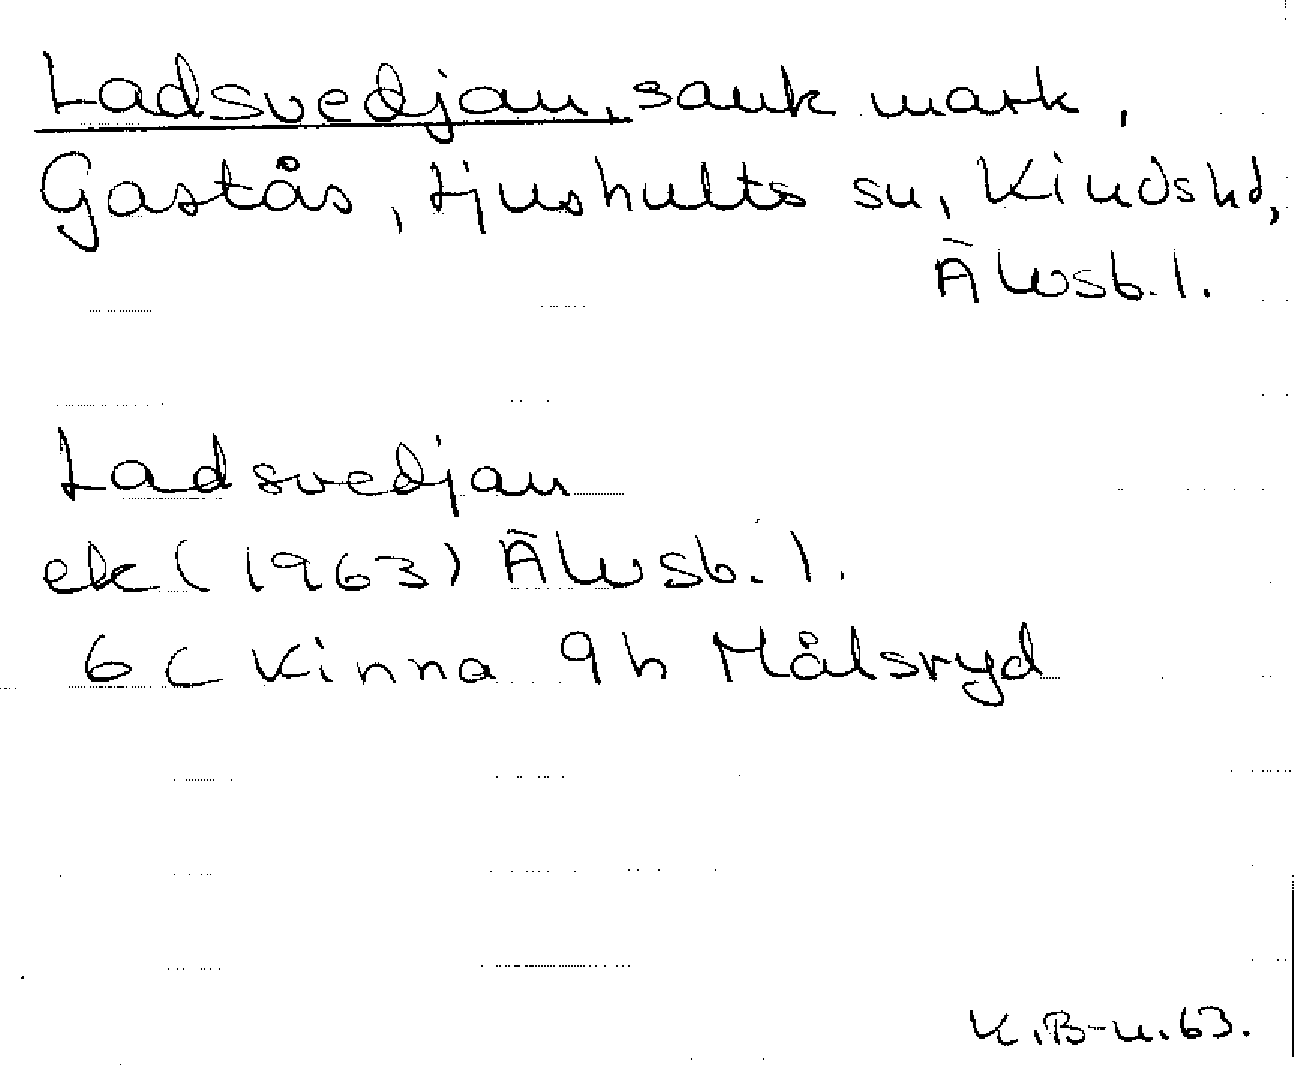 Ladsvedjan, sank mark,
Gastås, Ljushults sn, Kindshd,
Älvsb. l.
Ladsvedjan
ek (1963) Älvsb. l.
6C Kinna 9h Målsryd
K.B-n.63.